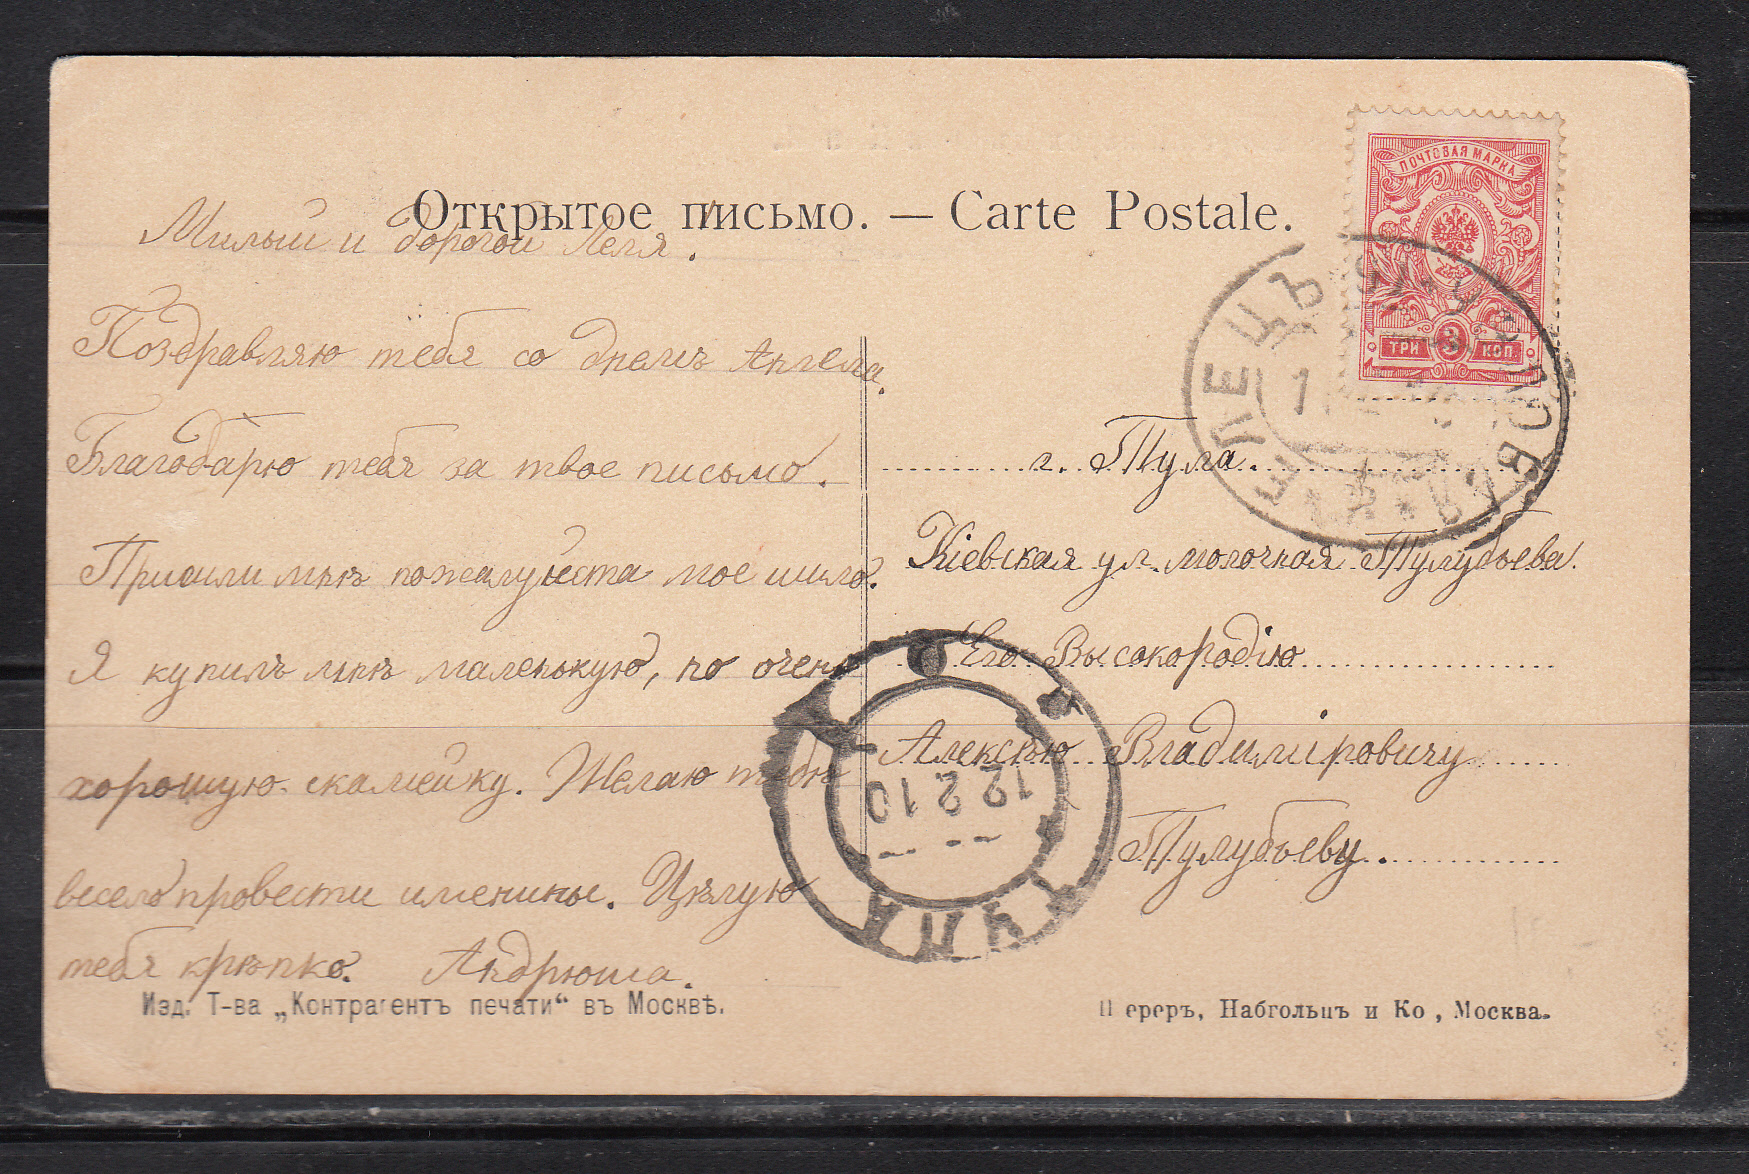 Открытое письмо. — Carte Postale.
ПОЧТОВАЯ МАРКА
ТРИ 3 КОП.
ЕЛЕЦЪ
Милый и дорогой Леля.
Поздравляю тебя со днемъ Ангела.
Благодарю тебя за твое письмо.
Пришли мнѣ пожалуйста мое шило.
Я купилъ мнѣ маленькую, но очень
хорошую скамейку. Желаю тебѣ
весело провести именины. Цѣлую
тебя крѣпко. Андрюша.
г. Тула.
Кіевская ул. молочная Тулубьева.
Его Высокородію
Алексѣю Владиміровичу
Тулубьеву.
ТУЛА
12 2 10
Изд. Т-ва „Контрагентъ печати“ въ Москвѣ.
Шереръ, Набгольцъ и Ко, Москва.